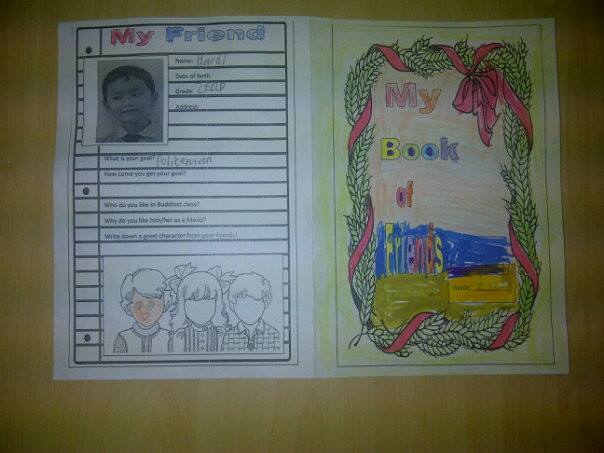 My Friend
Name: Hardi
Date of Birth:
Grade:
Address:
What is your goal? Policeman
How come you get your goal?
Who do you like in Buddhist class?
Why do you like him/her as a friend?
Write down a good character from your friends!
My
Book
of
Friends
Grade: 2